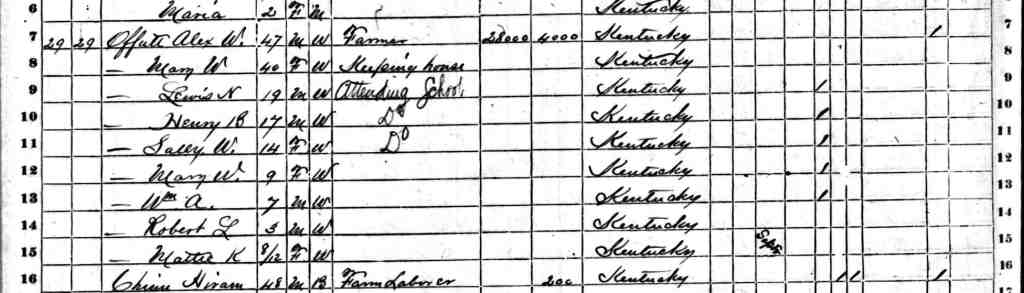 6 Maria 2 F M Kentucky
7 29 29 Offutt Alex W. 47 M W Farmer 28000 4000 Kentucky 1 7
8 — Mary W 40 F W Keeping house Kentucky 8
9 — Lewis N 19 M W Attending School Kentucky 1 9
10 — Henry B 17 M W Do Kentucky 1 10
11 — Sally W. 14 F W Do Kentucky 1 11
12 — Mary W. 9 F W Kentucky 1 12
13 — Wm A. 7 M W Kentucky 1 13
14 — Robert L 3 M W Kentucky 14
15 — Mattie K 8/12 F W Kentucky Sept 15
16 Hiram 48 M B Farm Laborer 200 Kentucky 1 1 1 16
17